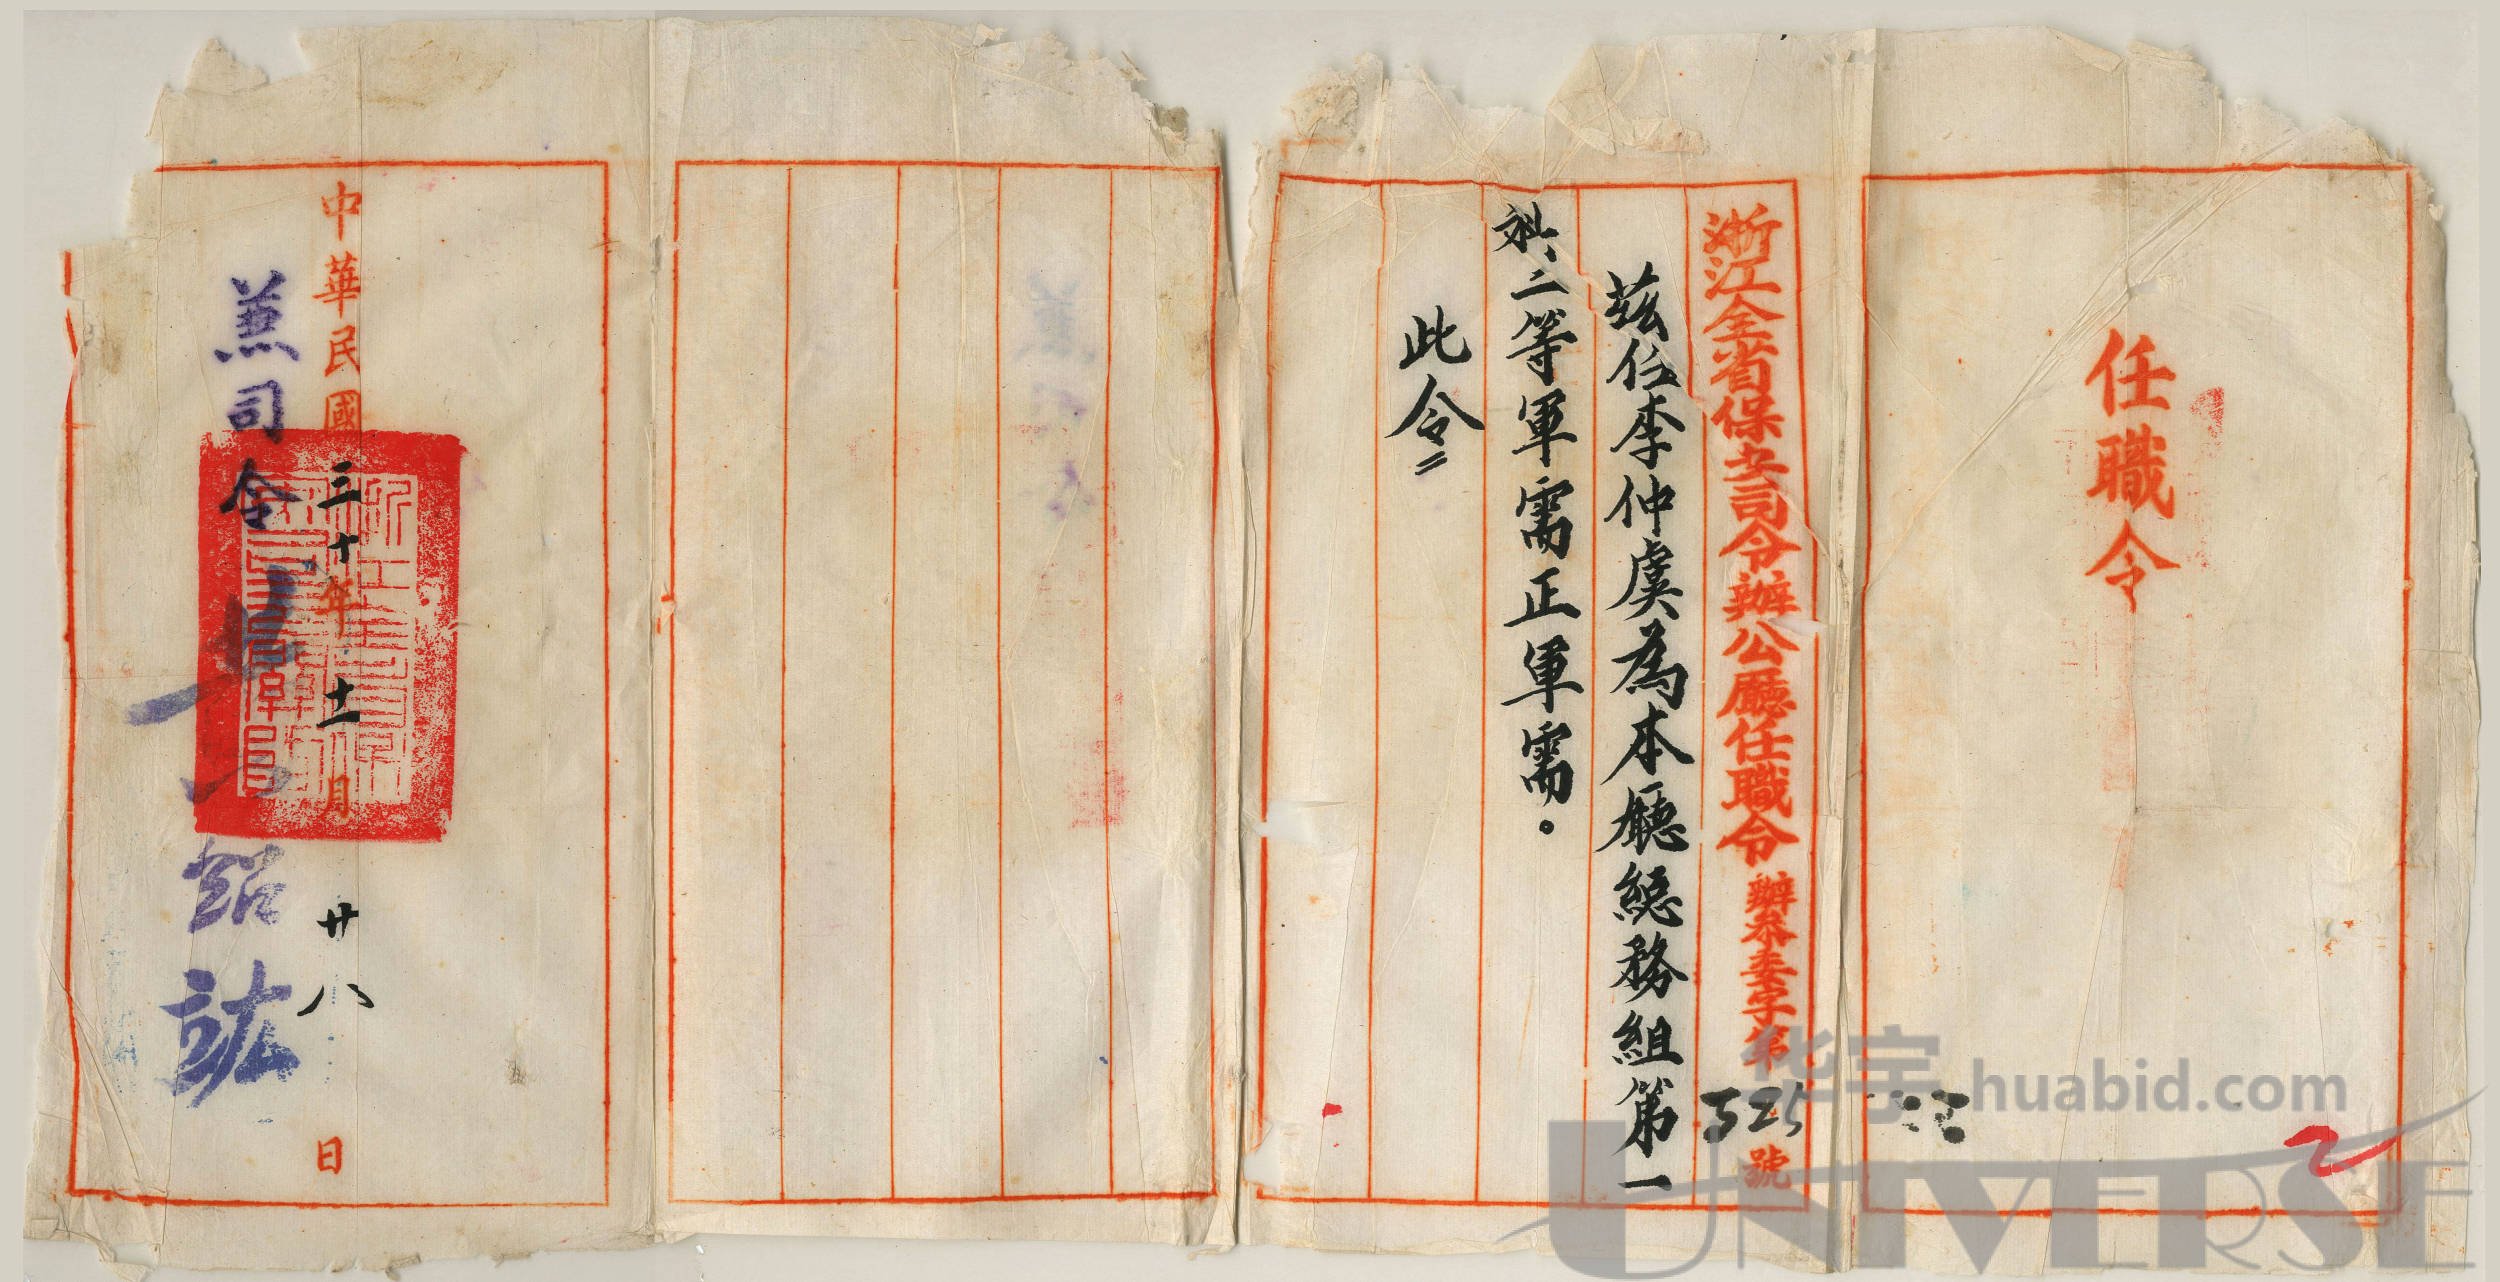 任職令
浙江全省保安司令辦公廳任職令 辦叅委字第525號
茲任李仲虞為本廳總務組第一
科、二等軍需正軍需。
此令
中華民國三十年十一月廿八日
兼司令
紹竑
华宇
huabid.com
UNIVERSE